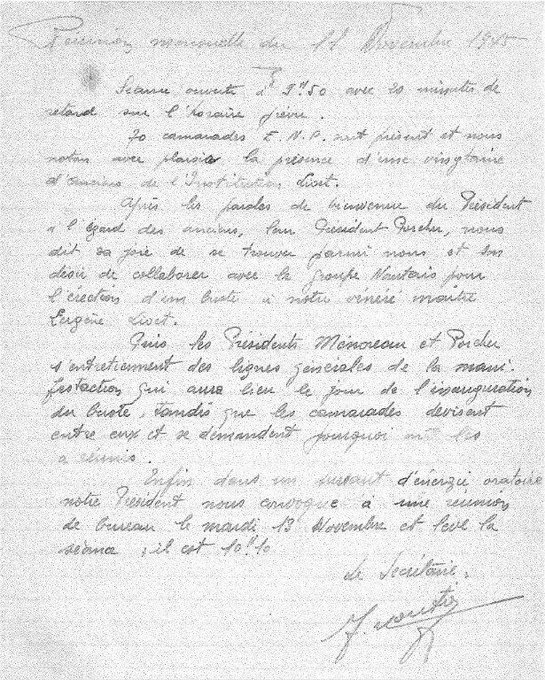 Réunion mensuelle du 11 Novembre 1945
Séance ouverte à 9ʰ50 avec 20 minutes de
retard sur l'horaire prévu.
70 camarades E.N.P. sont présent et nous
notons avec plaisir la présence d'une vingtaine
d'anciens de l'Institution Livet.
Après les paroles de bienvenue du Président
à l'égard des anciens, leur Président Porcher, nous
dit sa joie de se trouver parmi nous et son
désir de collaborer avec le groupe Nantais pour
l'érection d'un buste à notre vénéré maître
Eugène Livet.
Puis les Présidents Ménoreau et Porcher
s'entretiennent des lignes générales de la mani-
festation qui aura lieu le jour de l'inauguration
du buste, tandis que les camarades devisent
entre eux et se demandent pourquoi on les
a réunis.
Enfin dans un sursaut d'énergie oratoire
notre Président nous convoque à une réunion
de bureau le mardi 13 Novembre et lève la
séance ; il est 10ʰ10
Le Secrétaire.